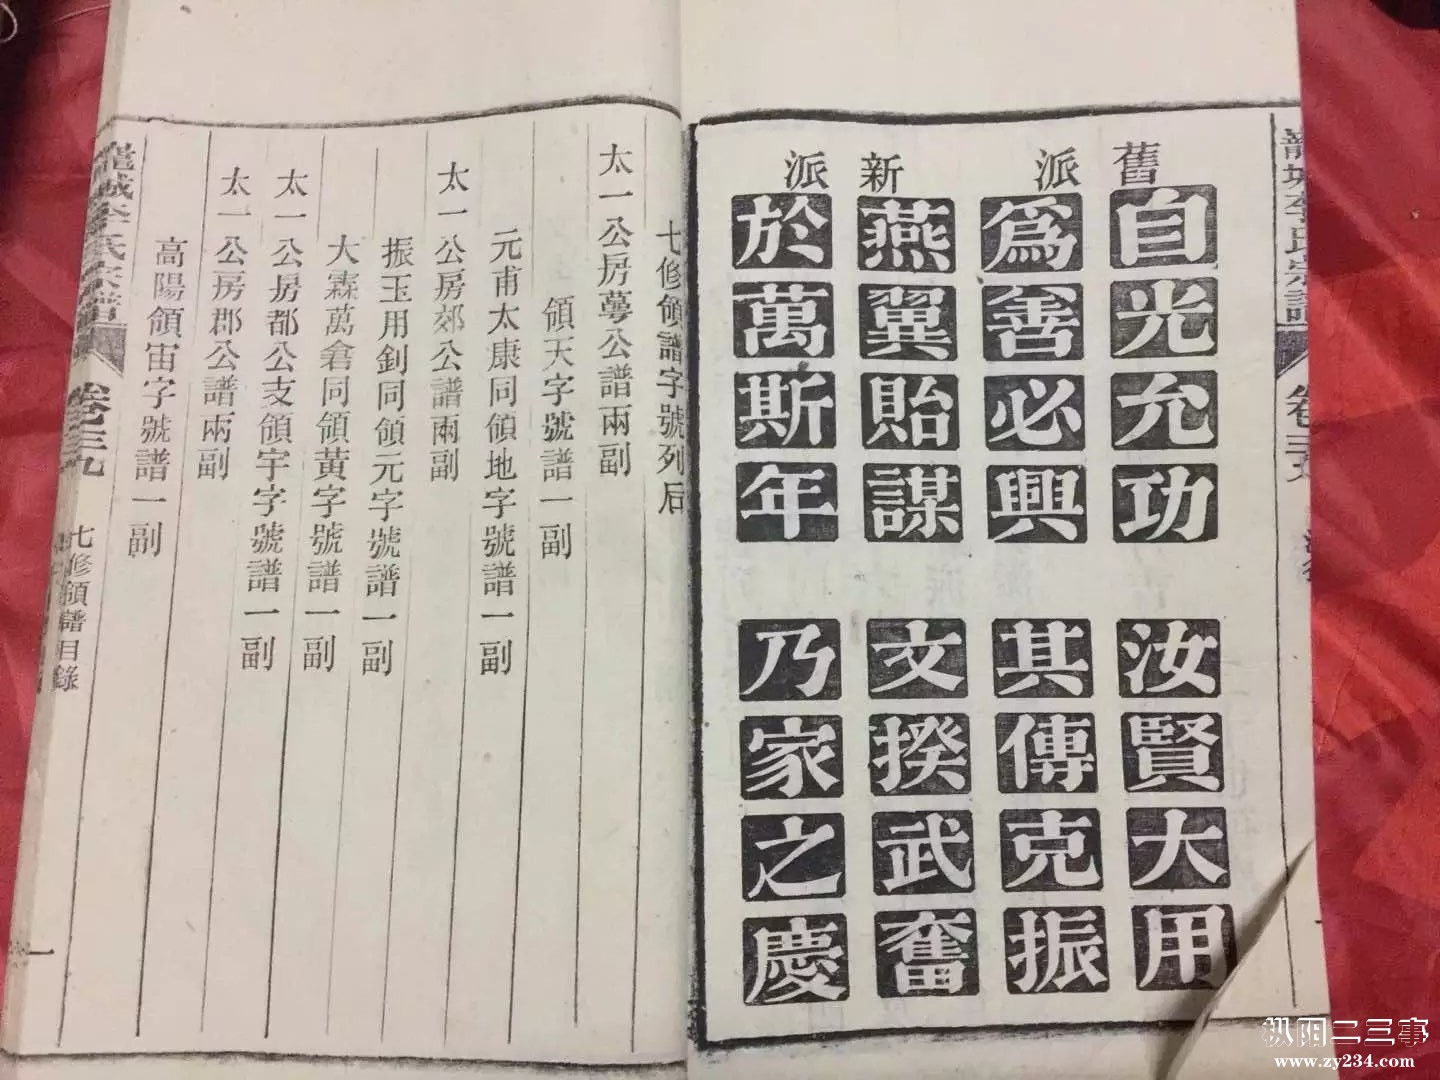 龍城李氏宗譜
舊派
自光允功
汝賢大用
為善必興
其傳克振
新派
燕翼貽謀
文揆武奮
於萬斯年
乃家之慶
七修領譜字號列后
太一公房蕚公譜兩副
領天字號譜一副
元甫太康同領地字號譜一副
太一公房郊公譜兩副
振玉用釗同領元字號譜一副
大霖萬倉同領黃字號譜一副
太一公房都公支領宇字號譜一副
太一公房郡公譜兩副
高陽領宙字號譜一副
龍城李氏宗譜
卷之三九
七修領譜目錄
一
枞阳二三事
www.zy234.com